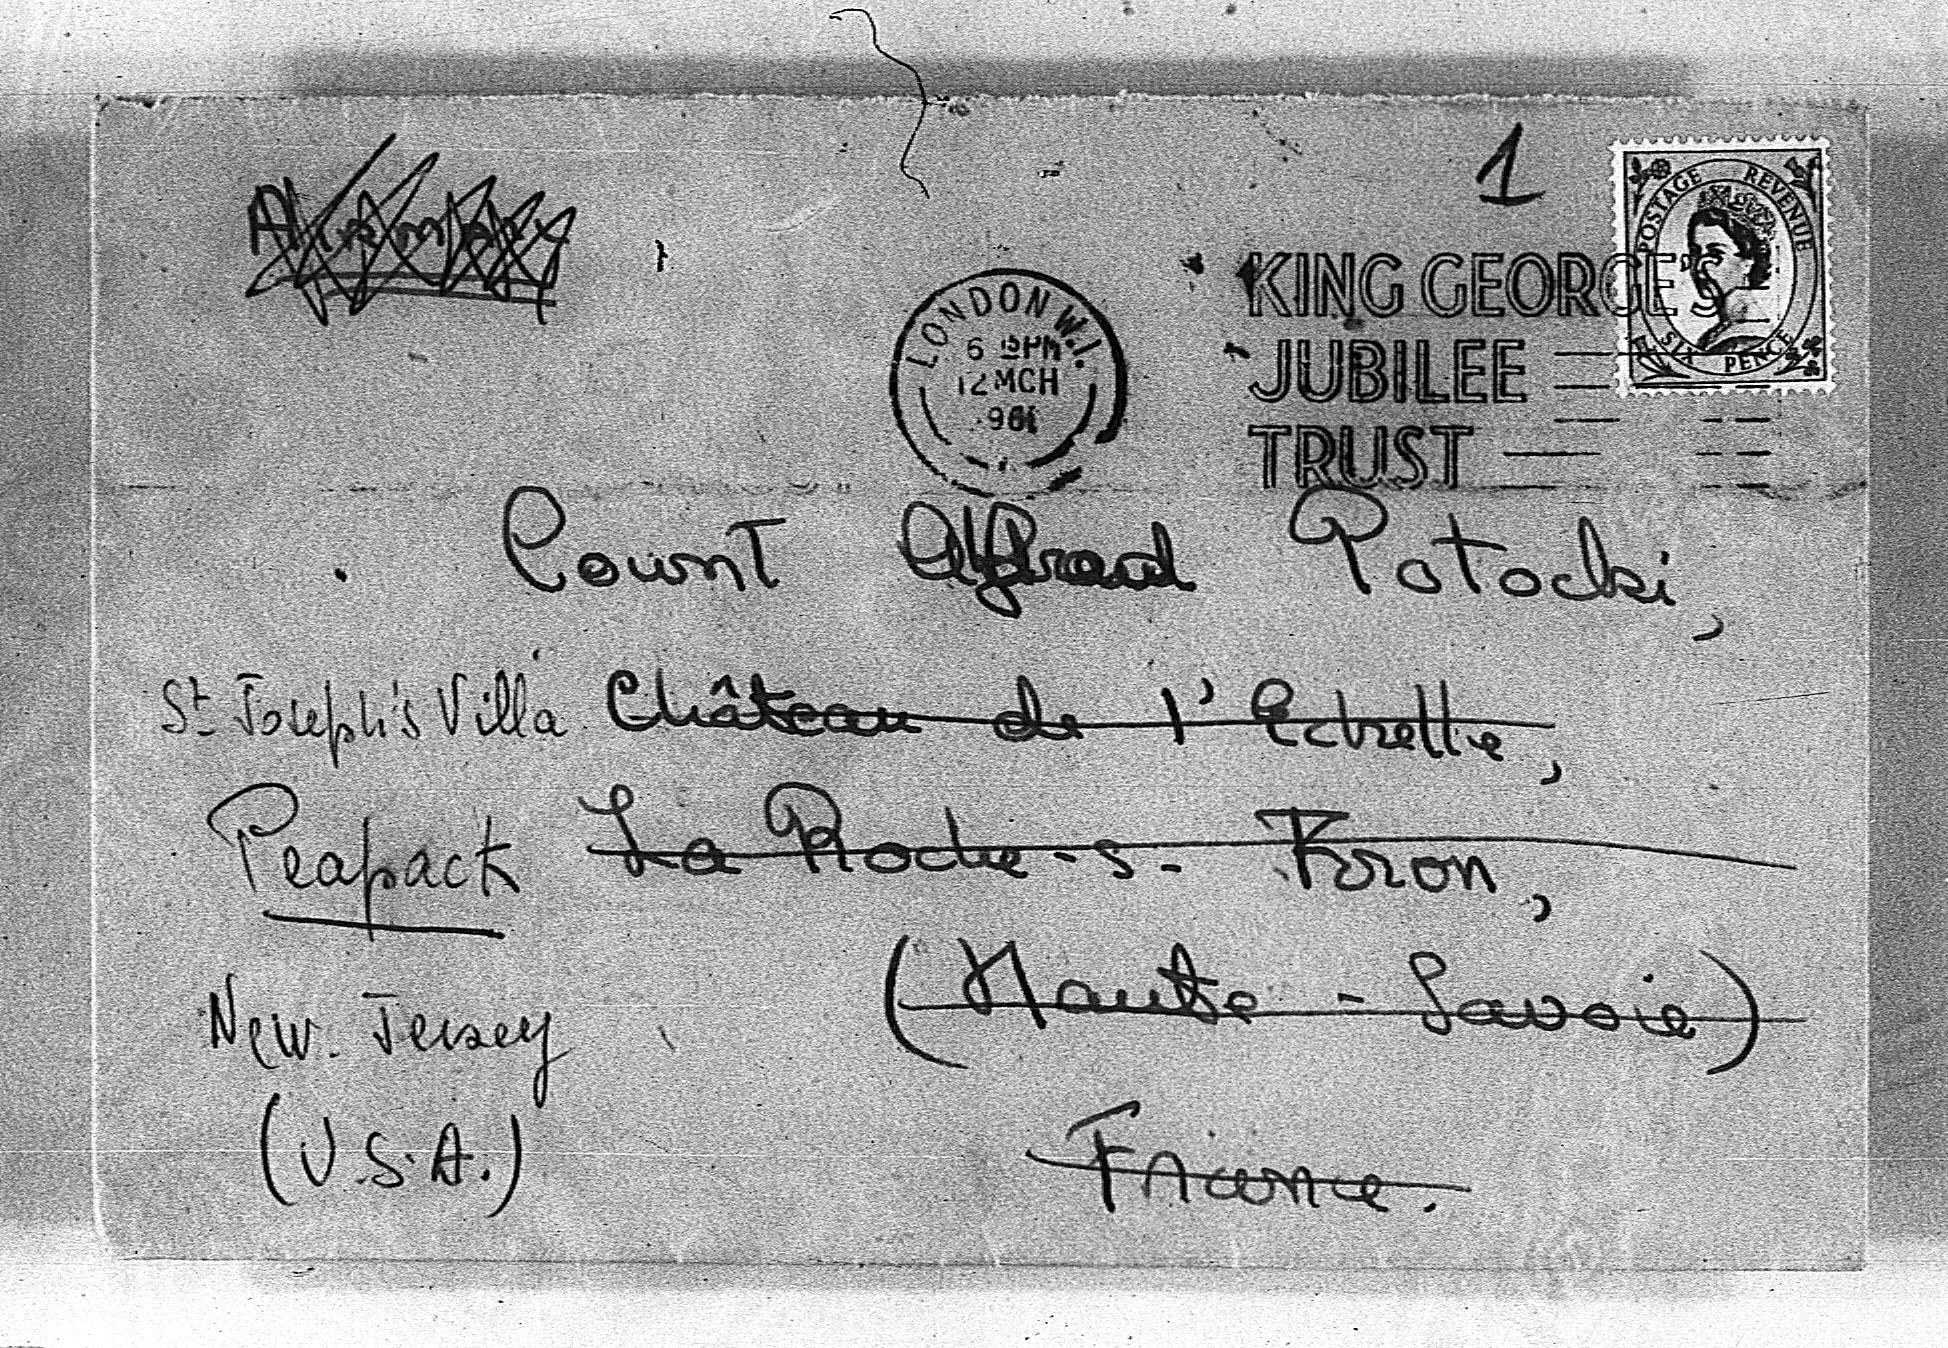 1
POSTAGE REVENUE
SIX PENCE
KING GEORGE'S
JUBILEE
TRUST
LONDON W.1.
6 PM
12 MCH
Count Alfred Potocki,
St Joseph's Villa Château de l'
Peapack La Roche-s- Foron,
New. Jersey (Haute-Savoie)
(U.S.A.) France.